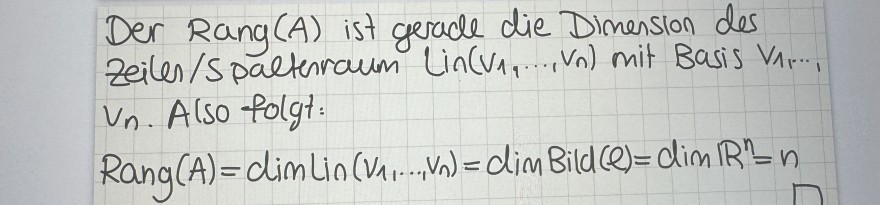 Der Rang(A) ist gerade die Dimension des
Zeilen/Spaltenraum Lin(v₁,...,vₙ) mit Basis v₁,...,
vₙ. Also folgt:
Rang(A) = dim Lin(v₁,...,vₙ) = dim Bild(ℓ) = dim ℝⁿ = n
□